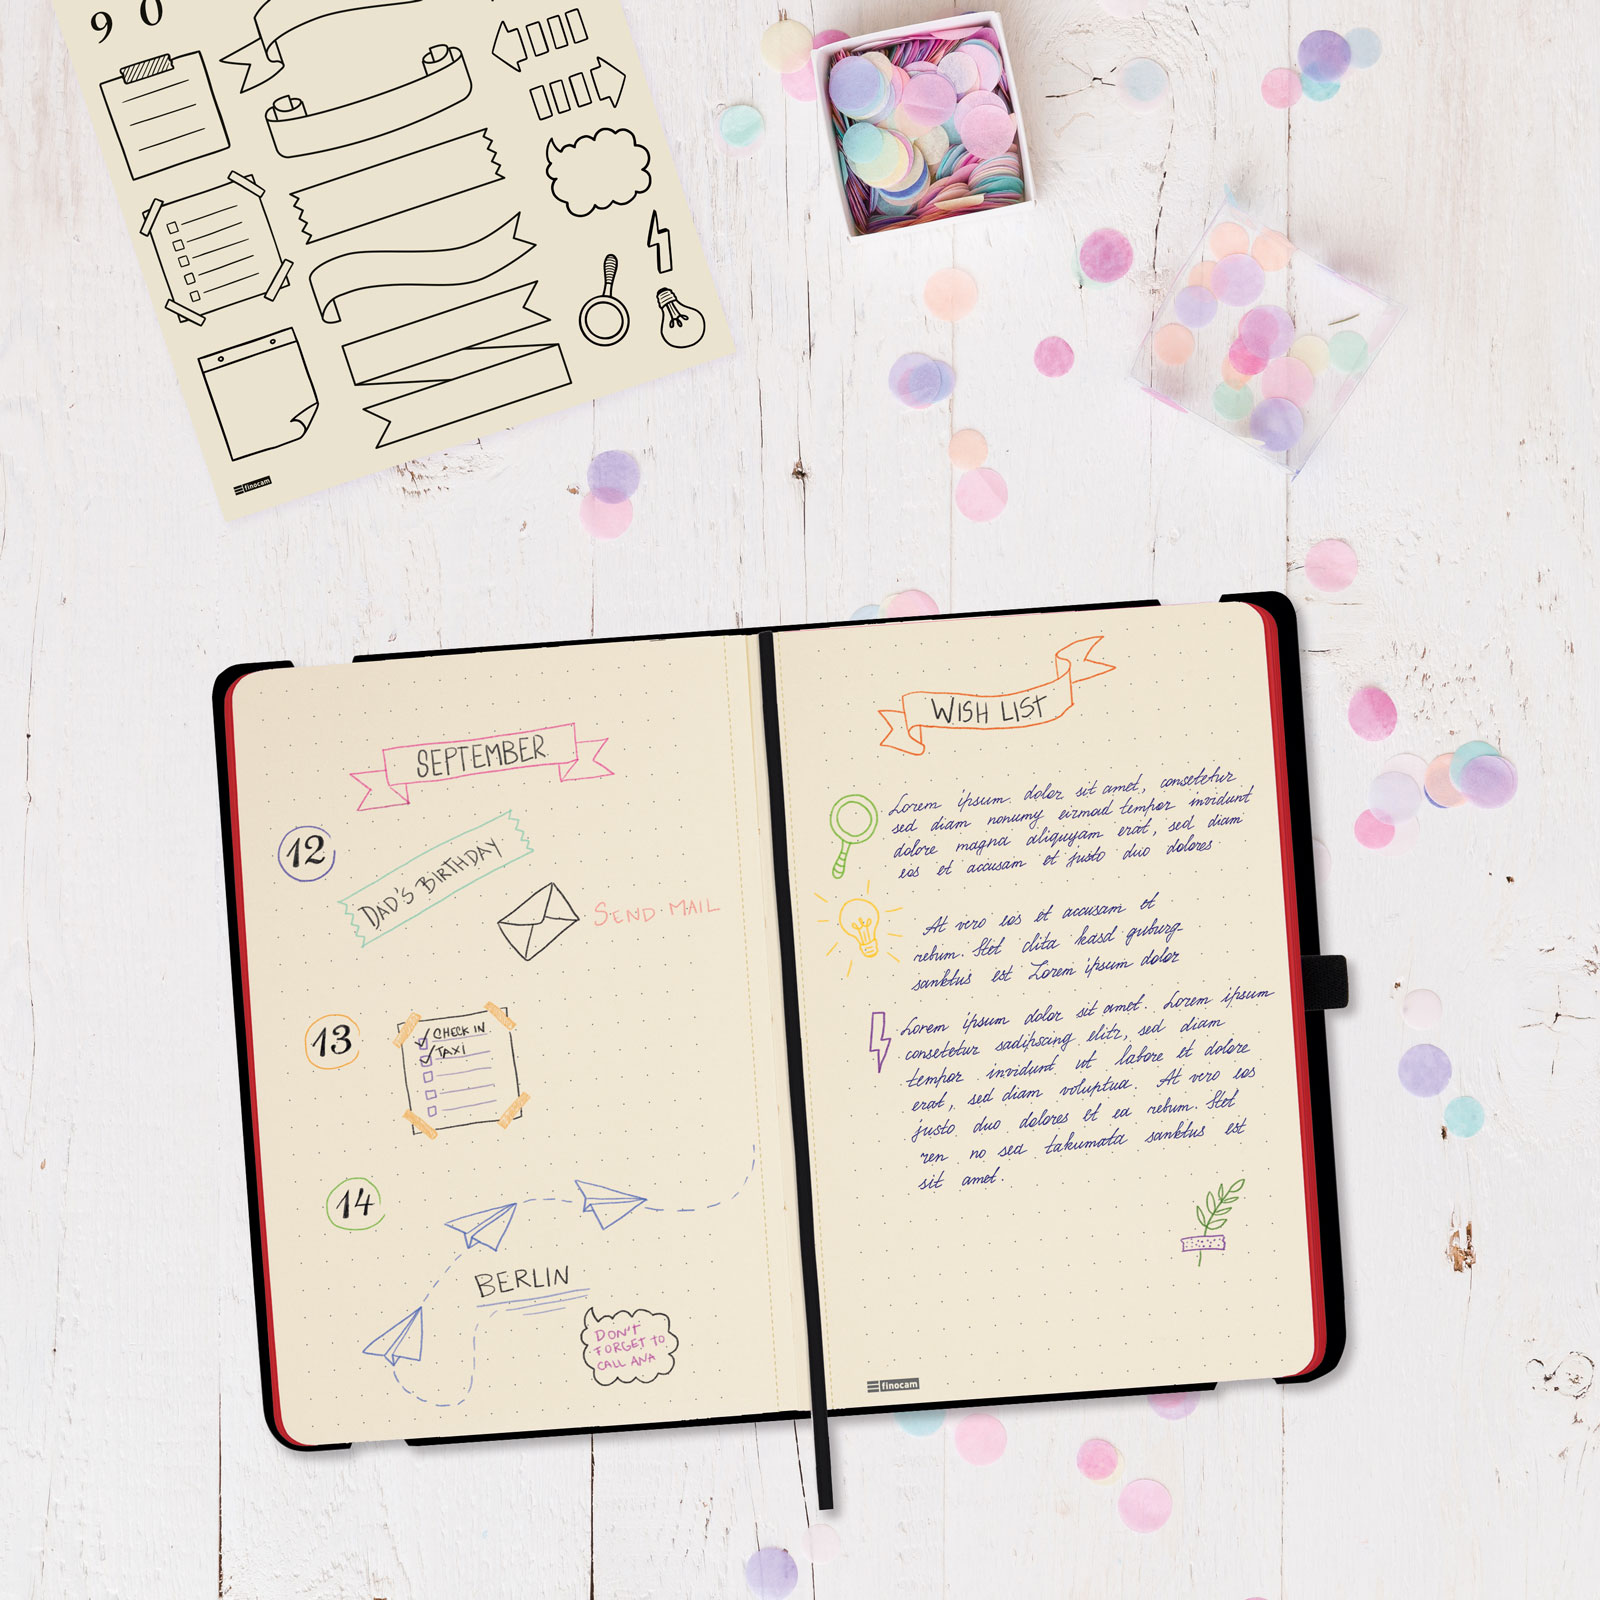 9 0
finocam
SEPTEMBER
12
DAD'S BIRTHDAY
SEND MAIL
13
CHECK IN
TAXI
14
BERLIN
DON'T
FORGET TO
CALL ANA
WISH LIST
Lorem ipsum dolor sit amet, consetetur
sed diam nonumy eirmod tempor invidunt
dolore magna aliquyam erat, sed diam
eos et accusam et justo duo dolores
At vero eos et accusam et
rebum. Stet clita kasd guburg
sanktus est Lorem ipsum dolor
Lorem ipsum dolor sit amet. Lorem ipsum
consetetur sadipscing elitr, sed diam
tempor invidunt ut labore et dolore
erat, sed diam voluptua. At vero eos
justo duo dolores et ea rebum. Stet
ren no sea takumata sanktus est
sit amet.
finocam